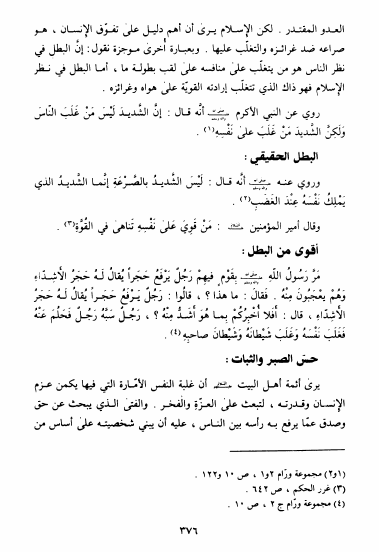 العدو المقتدر . لكن الإسلام يرى أن أهم دليل على تفوّق الإنسان ، هو
صراعه ضد غرائزه والتغلّب عليها . وبعبارة أُخرى موجزة نقول : إنَّ البطل في
نظر الناس هو من يتغلّب على منافسه على لقب بطولة ما ، أما البطل في نظر
الإسلام فهو ذاك الذي تتغلب إرادته القويّة على هواه وغرائزه .
روي عن النبي الأكرم أنَّه قال : إنَّ الشَّديدَ لَيْسَ مَنْ غَلَبَ النّاسَ
وَلكِنَّ الشَّديدَ مَنْ غَلَبَ عَلى نَفْسِهِ(١) .
البطل الحقيقي :
وروي عنه أنَّه قال : لَيْسَ الشَّديدُ بالصُّرَعَةِ إنَّما الشَّديدُ الذي
يَمْلِكُ نَفْسَهُ عِنْدَ الغَضَبِ(٢) .
وقال أمير المؤمنين : مَنْ قَوِيَ عَلى نَفْسِهِ تَناهى في القُوَّةِ(٣) .
أقوى من البطل :
مَرَّ رَسُولُ اللَّهِ بِقَوْمٍ فيهِمْ رَجُلٌ يَرْفَعُ حَجَراً يُقالُ لَـهُ حَجَرُ الأَشِدّاءِ
وَهُمْ يَعْجَبُونَ مِنْهُ . فَقالَ : ما هذا ؟ ، قالُوا : رَجُلٌ يَـرْفَعُ حَجَـراً يُقالُ لَـهُ حَجَرُ
الأَشِدّاءِ ، قال : أَفَلا أُخْبِرُكُمْ بِمـا هُوَ أَشَـدُّ مِنْهُ ؟ ، رَجُـلٌ سَبَّهُ رَجُـلٌ فَحَلُمَ عَنْهُ
فَغَلَبَ نَفْسَهُ وَغَلَبَ شَيْطانَهُ وَشَيْطانَ صاحِبِهِ(٤) .
حسّ الصبر والثبات :
يرى أئمة أهـل البيت أن غلبة النفس الأمّارة التي فيها يكمن عـزم
الإنسان وقدرتـه ، لتبعث على العـزّة والفخـر . والفتى الـذي يبحث عن حق
وصدق عمّا يرفع بـه رأسه بين النـاس ، عليه أن يبني شخصيتـه على أساس من
(١و٢) مجموعة ورّام ٢و١ ، ص ١٠ و١٢٢ .
(٣) غرر الحكم ، ص ٦٤٢ .
(٤) مجموعة ورّام ج ٢ ، ص ١٠ .
٣٧٦